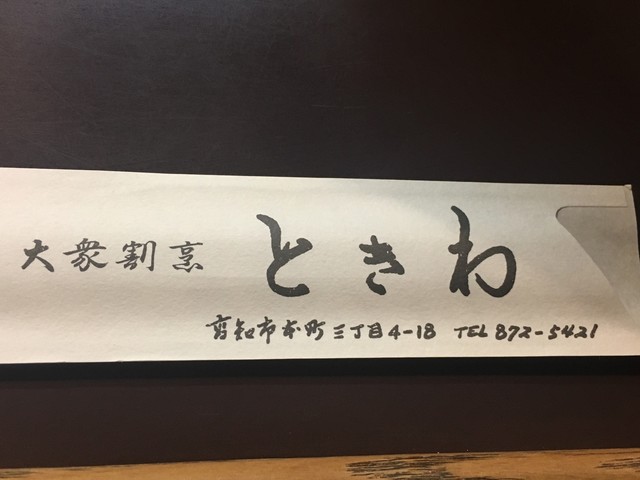 大衆割烹 ときわ
高知市本町三丁目4-18 TEL 872-5421